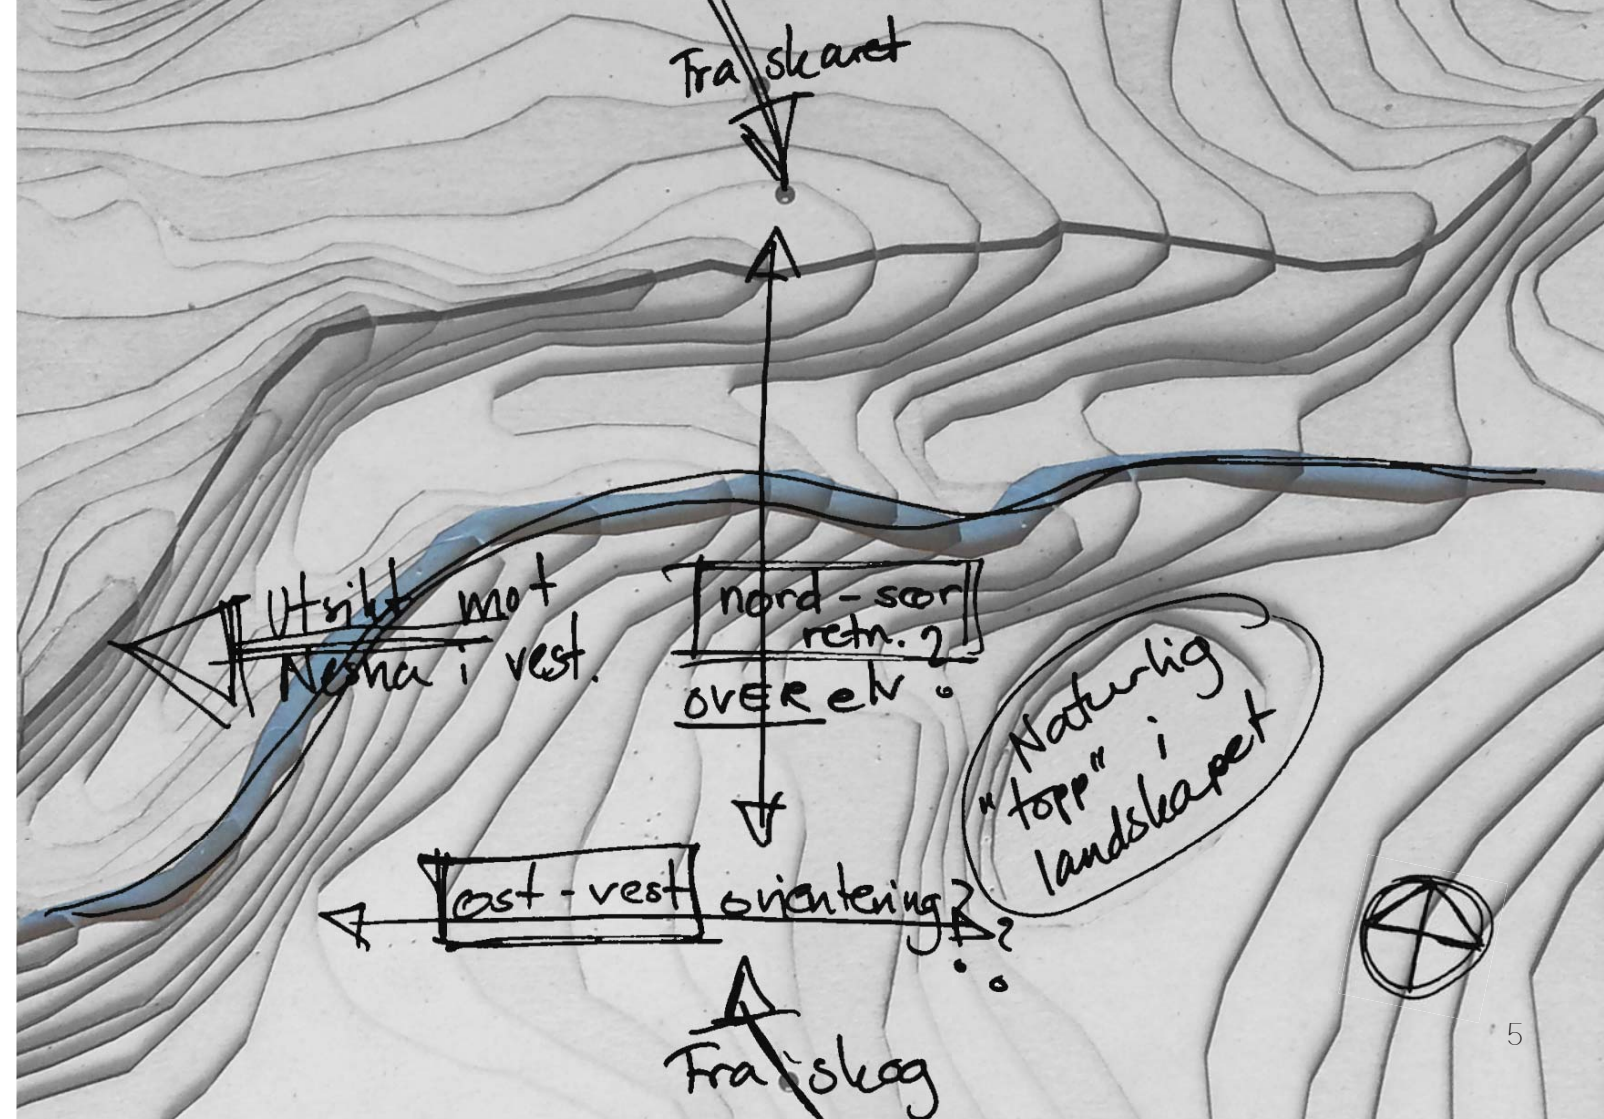 Fra skaret
Utsikt mot
Nesna i vest.
nord-sør
retn.?
OVER elv?
Naturlig
"topp" i
landskapet
øst-vest orientering??
Fra skog
5